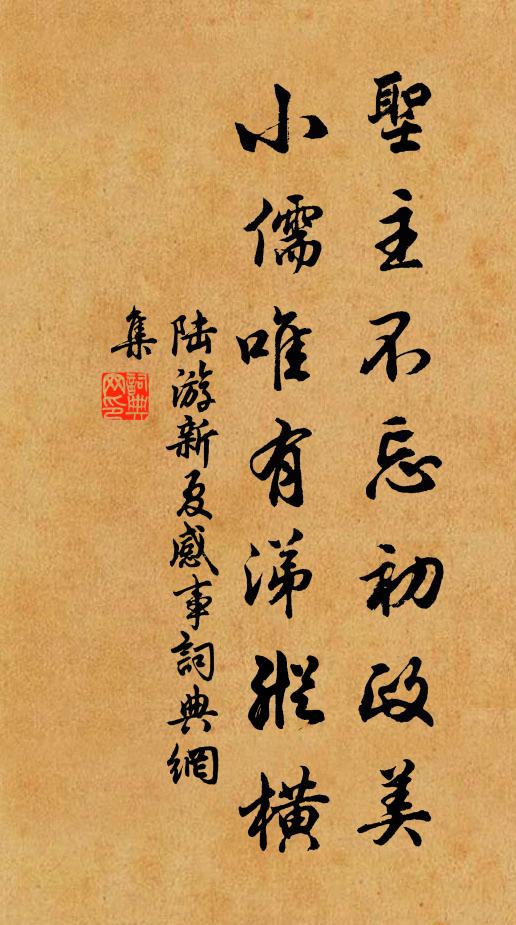 聖主不忘初政美
小儒唯有涕縱橫
陆游新夏感事詞典網
集
詞典
网印